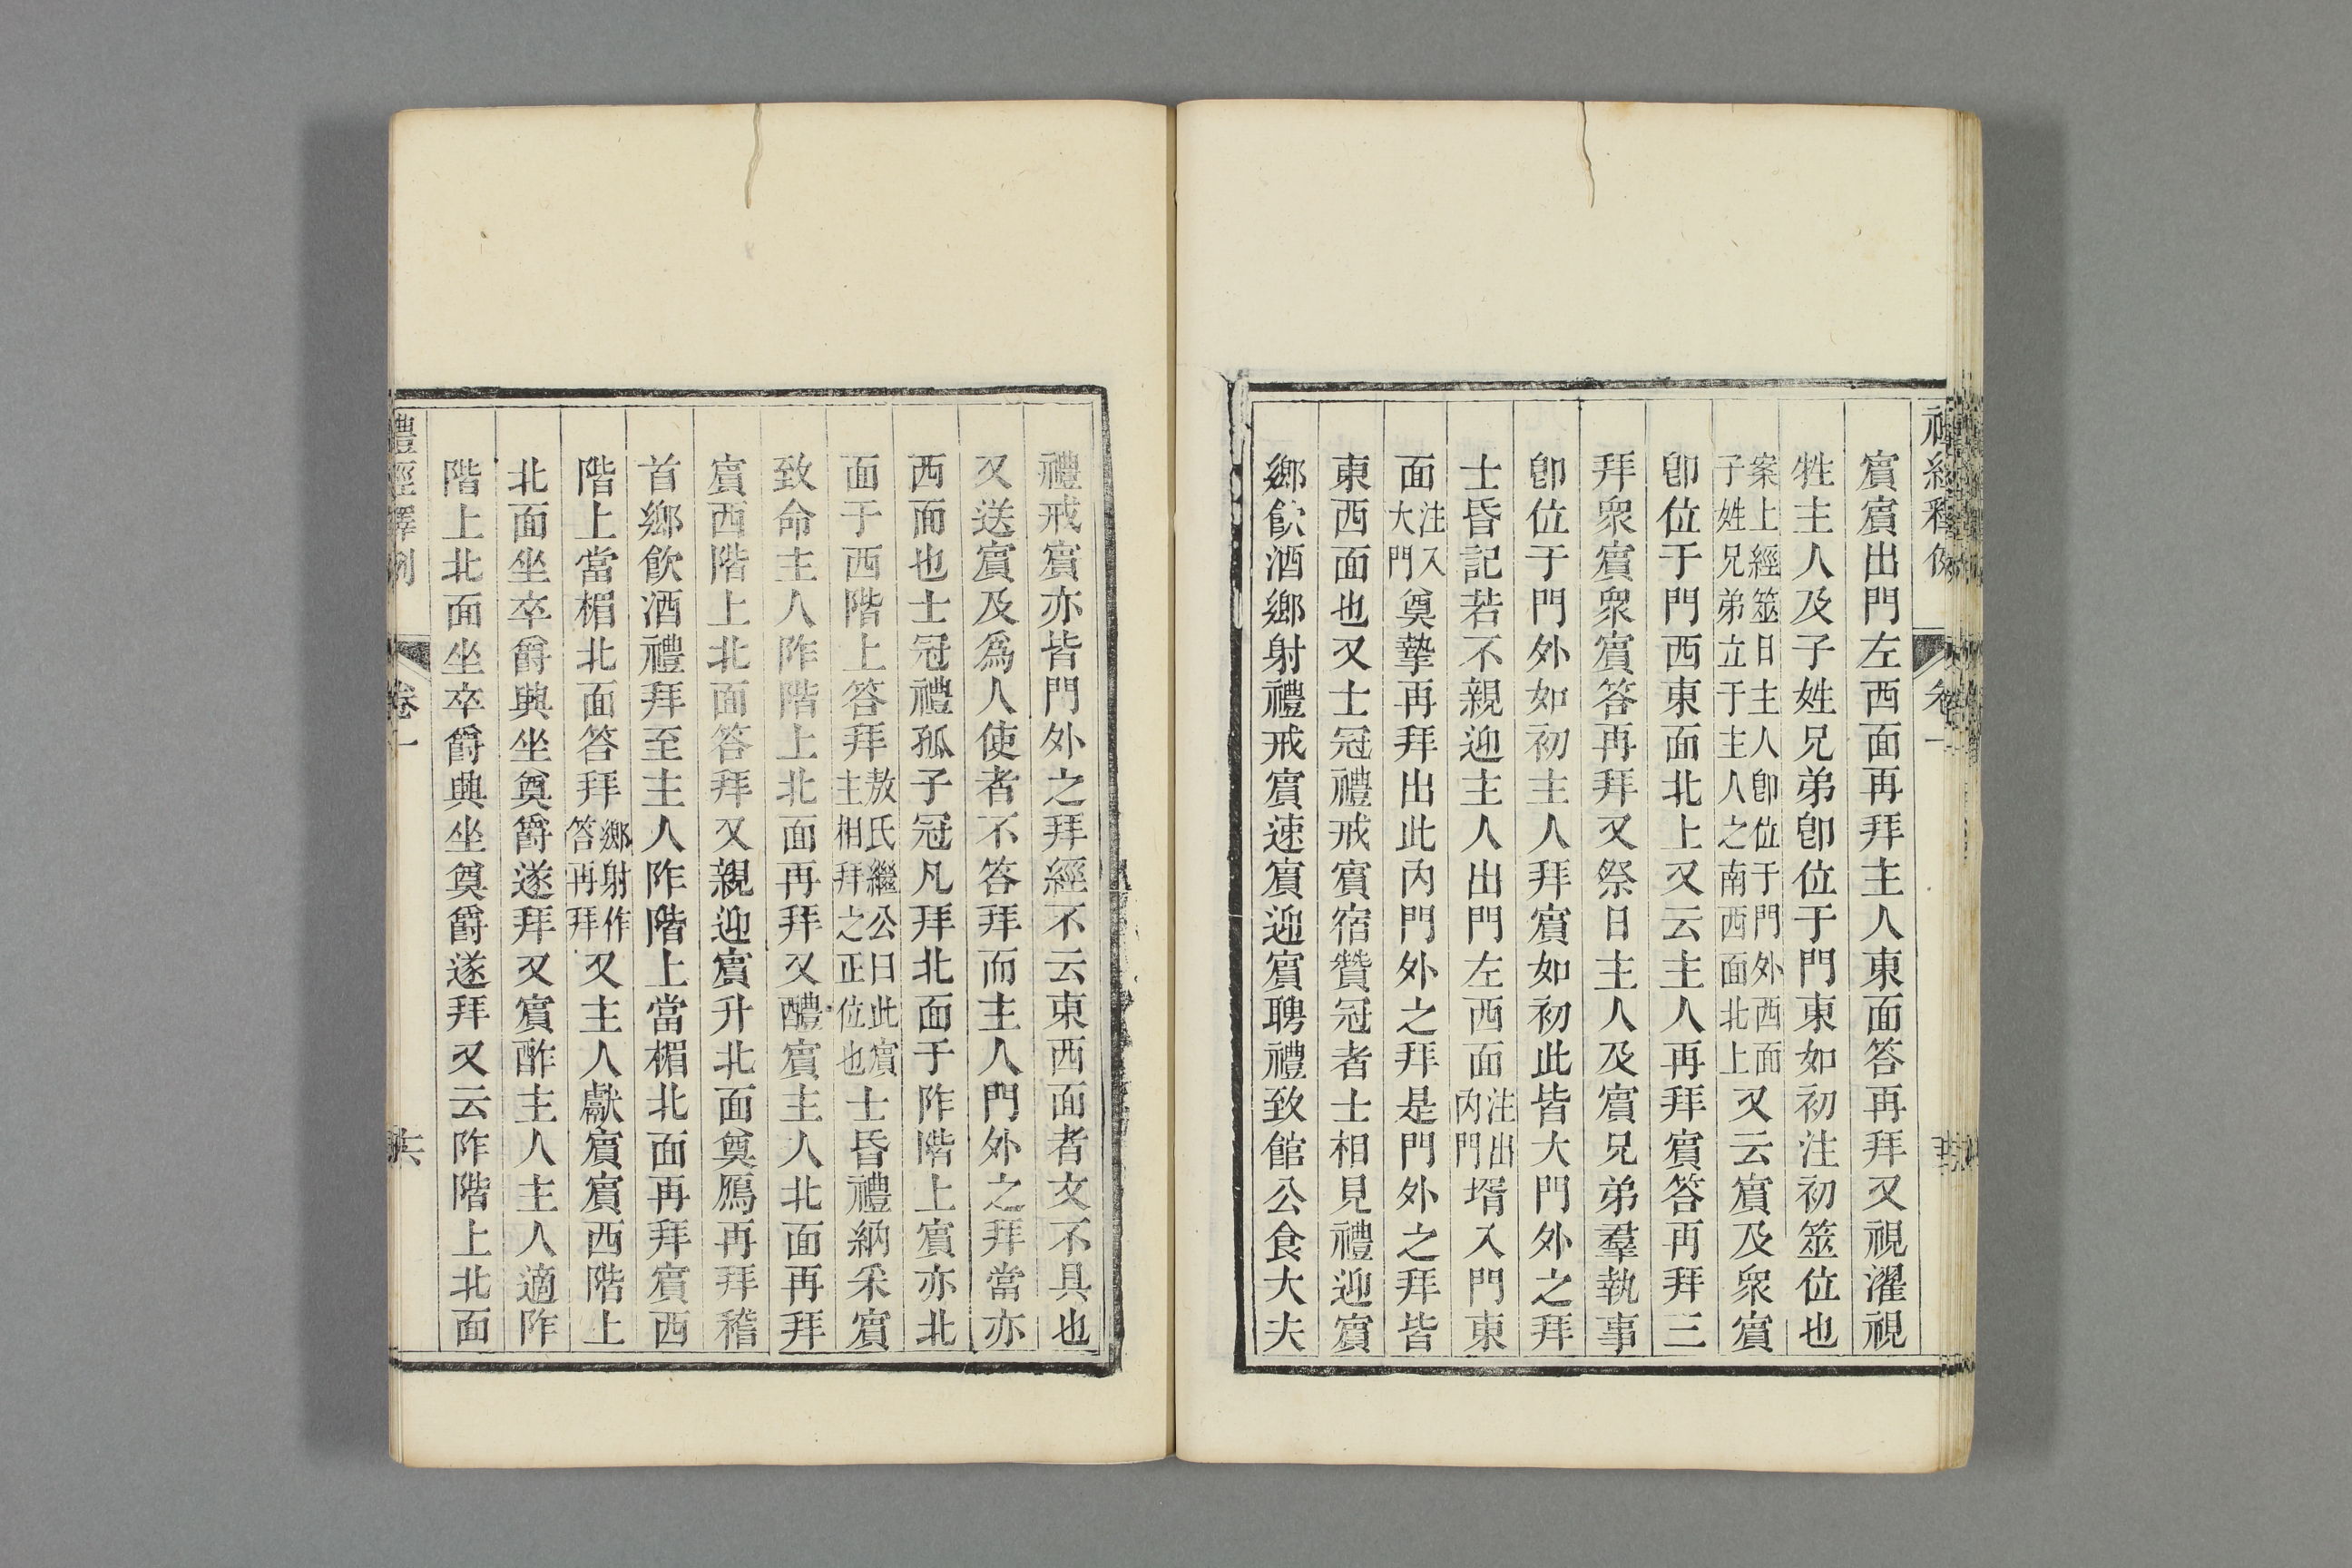 賔賔出門左西面再拜主人東面答再拜又視濯視
牲主人及子姓兄弟卽位于門東如初注初筮位也
案上經筮日主人卽位于門外西面
子姓兄弟立于主人之南西面北上
又云賔及衆賔
卽位于門西東面北上又云主人再拜賔答再拜三
拜衆賔衆賔答再拜又祭日主人及賔兄弟羣執事
卽位于門外如初主人拜賔如初此皆大門外之拜
士昏記若不親迎主人出門左西面
注出
內門
壻入門東
面
注入
大門
奠摯再拜出此內門外之拜是門外之拜皆
東西面也又士冠禮戒賔宿贊冠者士相見禮迎賔
鄉飮酒鄉射禮戒賔速賔迎賔聘禮致館公食大夫
禮戒賔亦皆門外之拜經不云東西面者文不具也
又送賔及爲人使者不答拜而主人門外之拜當亦
西面也士冠禮孤子冠凡拜北面于阼階上賔亦北
面于西階上答拜
敖氏繼公曰此賔
主相拜之正位也
士昏禮納采賔
致命主人阼階上北面再拜又醴賔主人北面再拜
賔西階上北面答拜又親迎賔升北面奠鴈再拜稽
首鄉飮酒禮拜至主人阼階上當楣北面再拜賔西
階上當楣北面答拜
鄉射作
答再拜
又主人獻賔賔西階上
北面坐卒爵興坐奠爵遂拜又賔酢主人主人適阼
階上北面坐卒爵興坐奠爵遂拜又云阼階上北面
禮經釋例
卷一
六